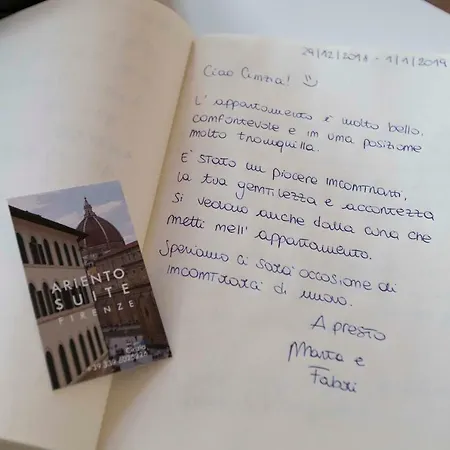 29/12/2018 - 1/1/2019
Ciao Cinzia! :)
L' appartamento è molto bello,
confortevole e in una posizione
molto tranquilla.
E' stato un piacere incontrarti,
la tua gentilezza e accortezza
si vedono anche dalla cura che
metti nell' appartamento.
Speriamo ci sarà occasione di
incontrarci di nuovo.
A presto
Marta e
Fabri
ARIENTO
SUITE
FIRENZE